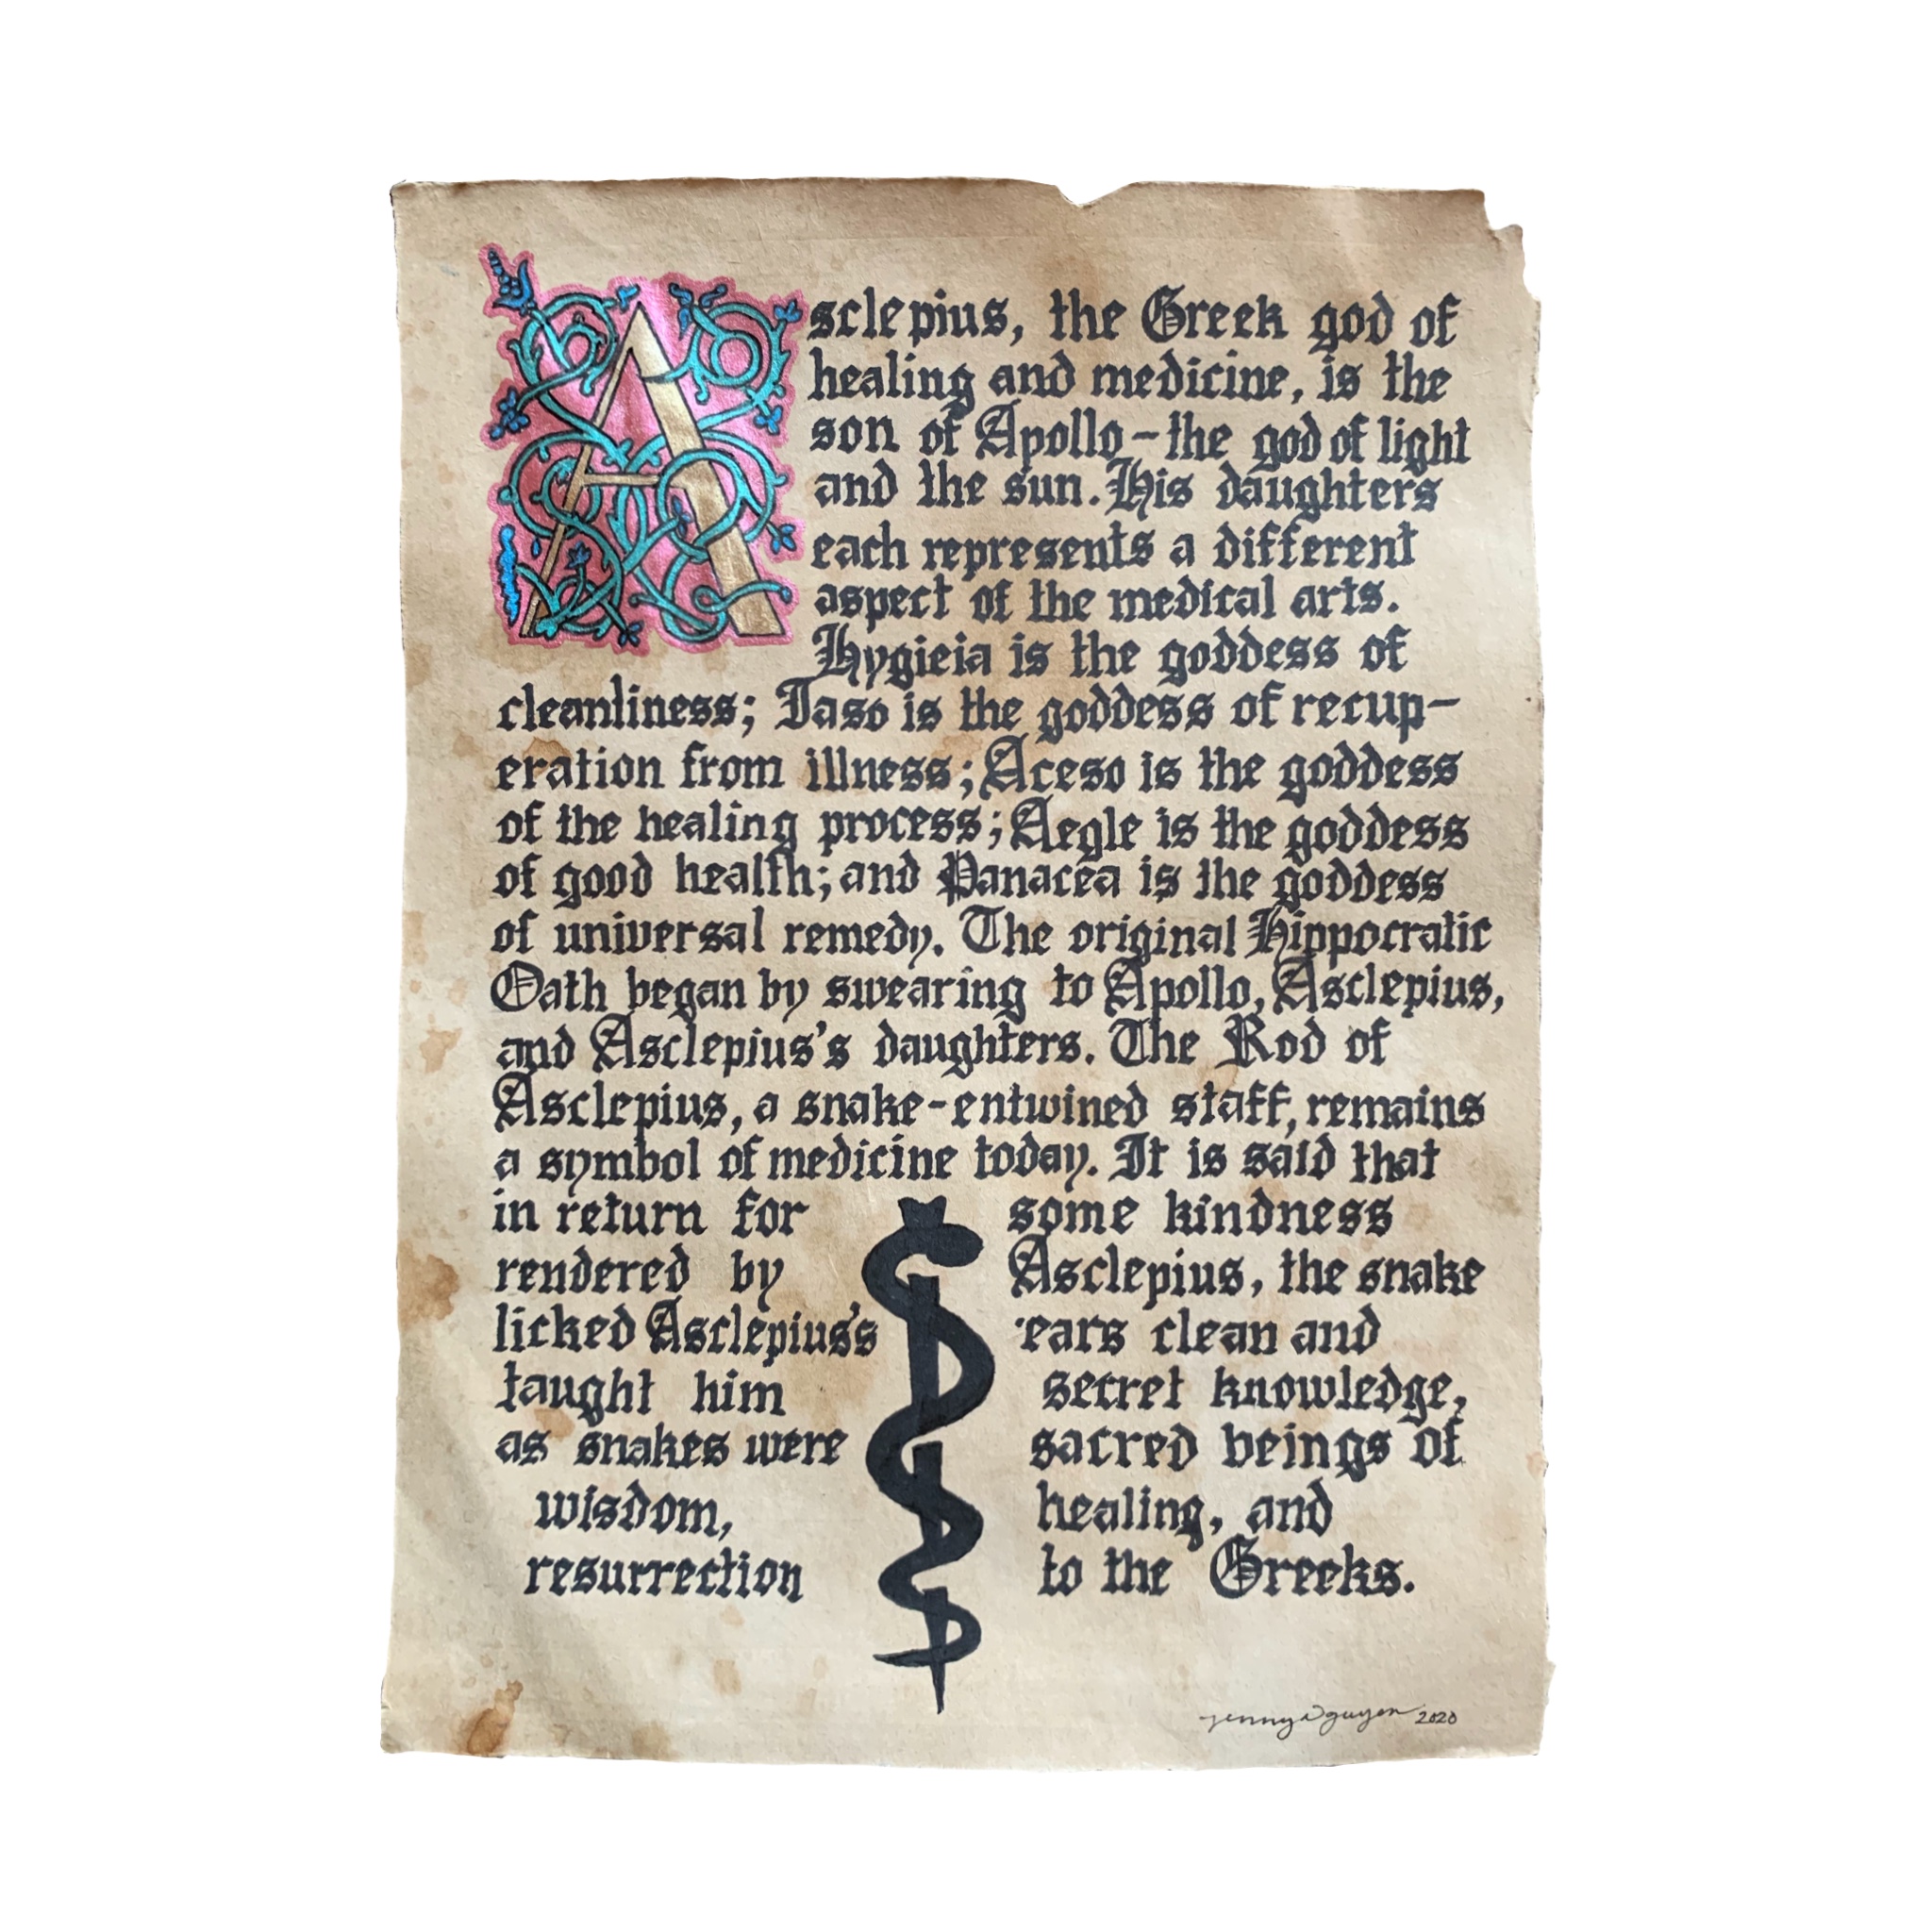 Asclepius, the Greek god of
healing and medicine, is the
son of Apollo - the god of light
and the sun. His daughters
each represents a different
aspect of the medical arts.
Hygieia is the goddess of
cleanliness; Iaso is the goddess of recup-
eration from illness; Aceso is the goddess
of the healing process; Aegle is the goddess
of good health; and Panacea is the goddess
of universal remedy. The original Hippocratic
Oath began by swearing to Apollo, Asclepius,
and Asclepius's daughters. The Rod of
Asclepius, a snake-entwined staff, remains
a symbol of medicine today. It is said that
in return for some kindness
rendered by Asclepius, the snake
licked Asclepius's ears clean and
taught him secret knowledge,
as snakes were sacred beings of
wisdom, healing, and
resurrection to the Greeks.
Jenny Nguyen 2020